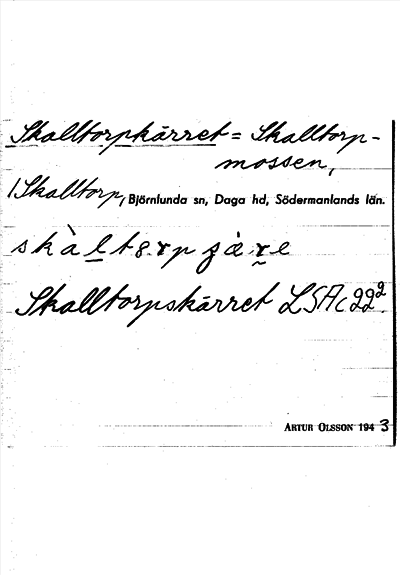 Skalltorpkärret = Skalltorp-
mossen,
/Skalltorp, Björnlunda sn, Daga hd, Södermanlands län.
Skalltorpskärret LSA c 22²
ARTUR OLSSON 1943